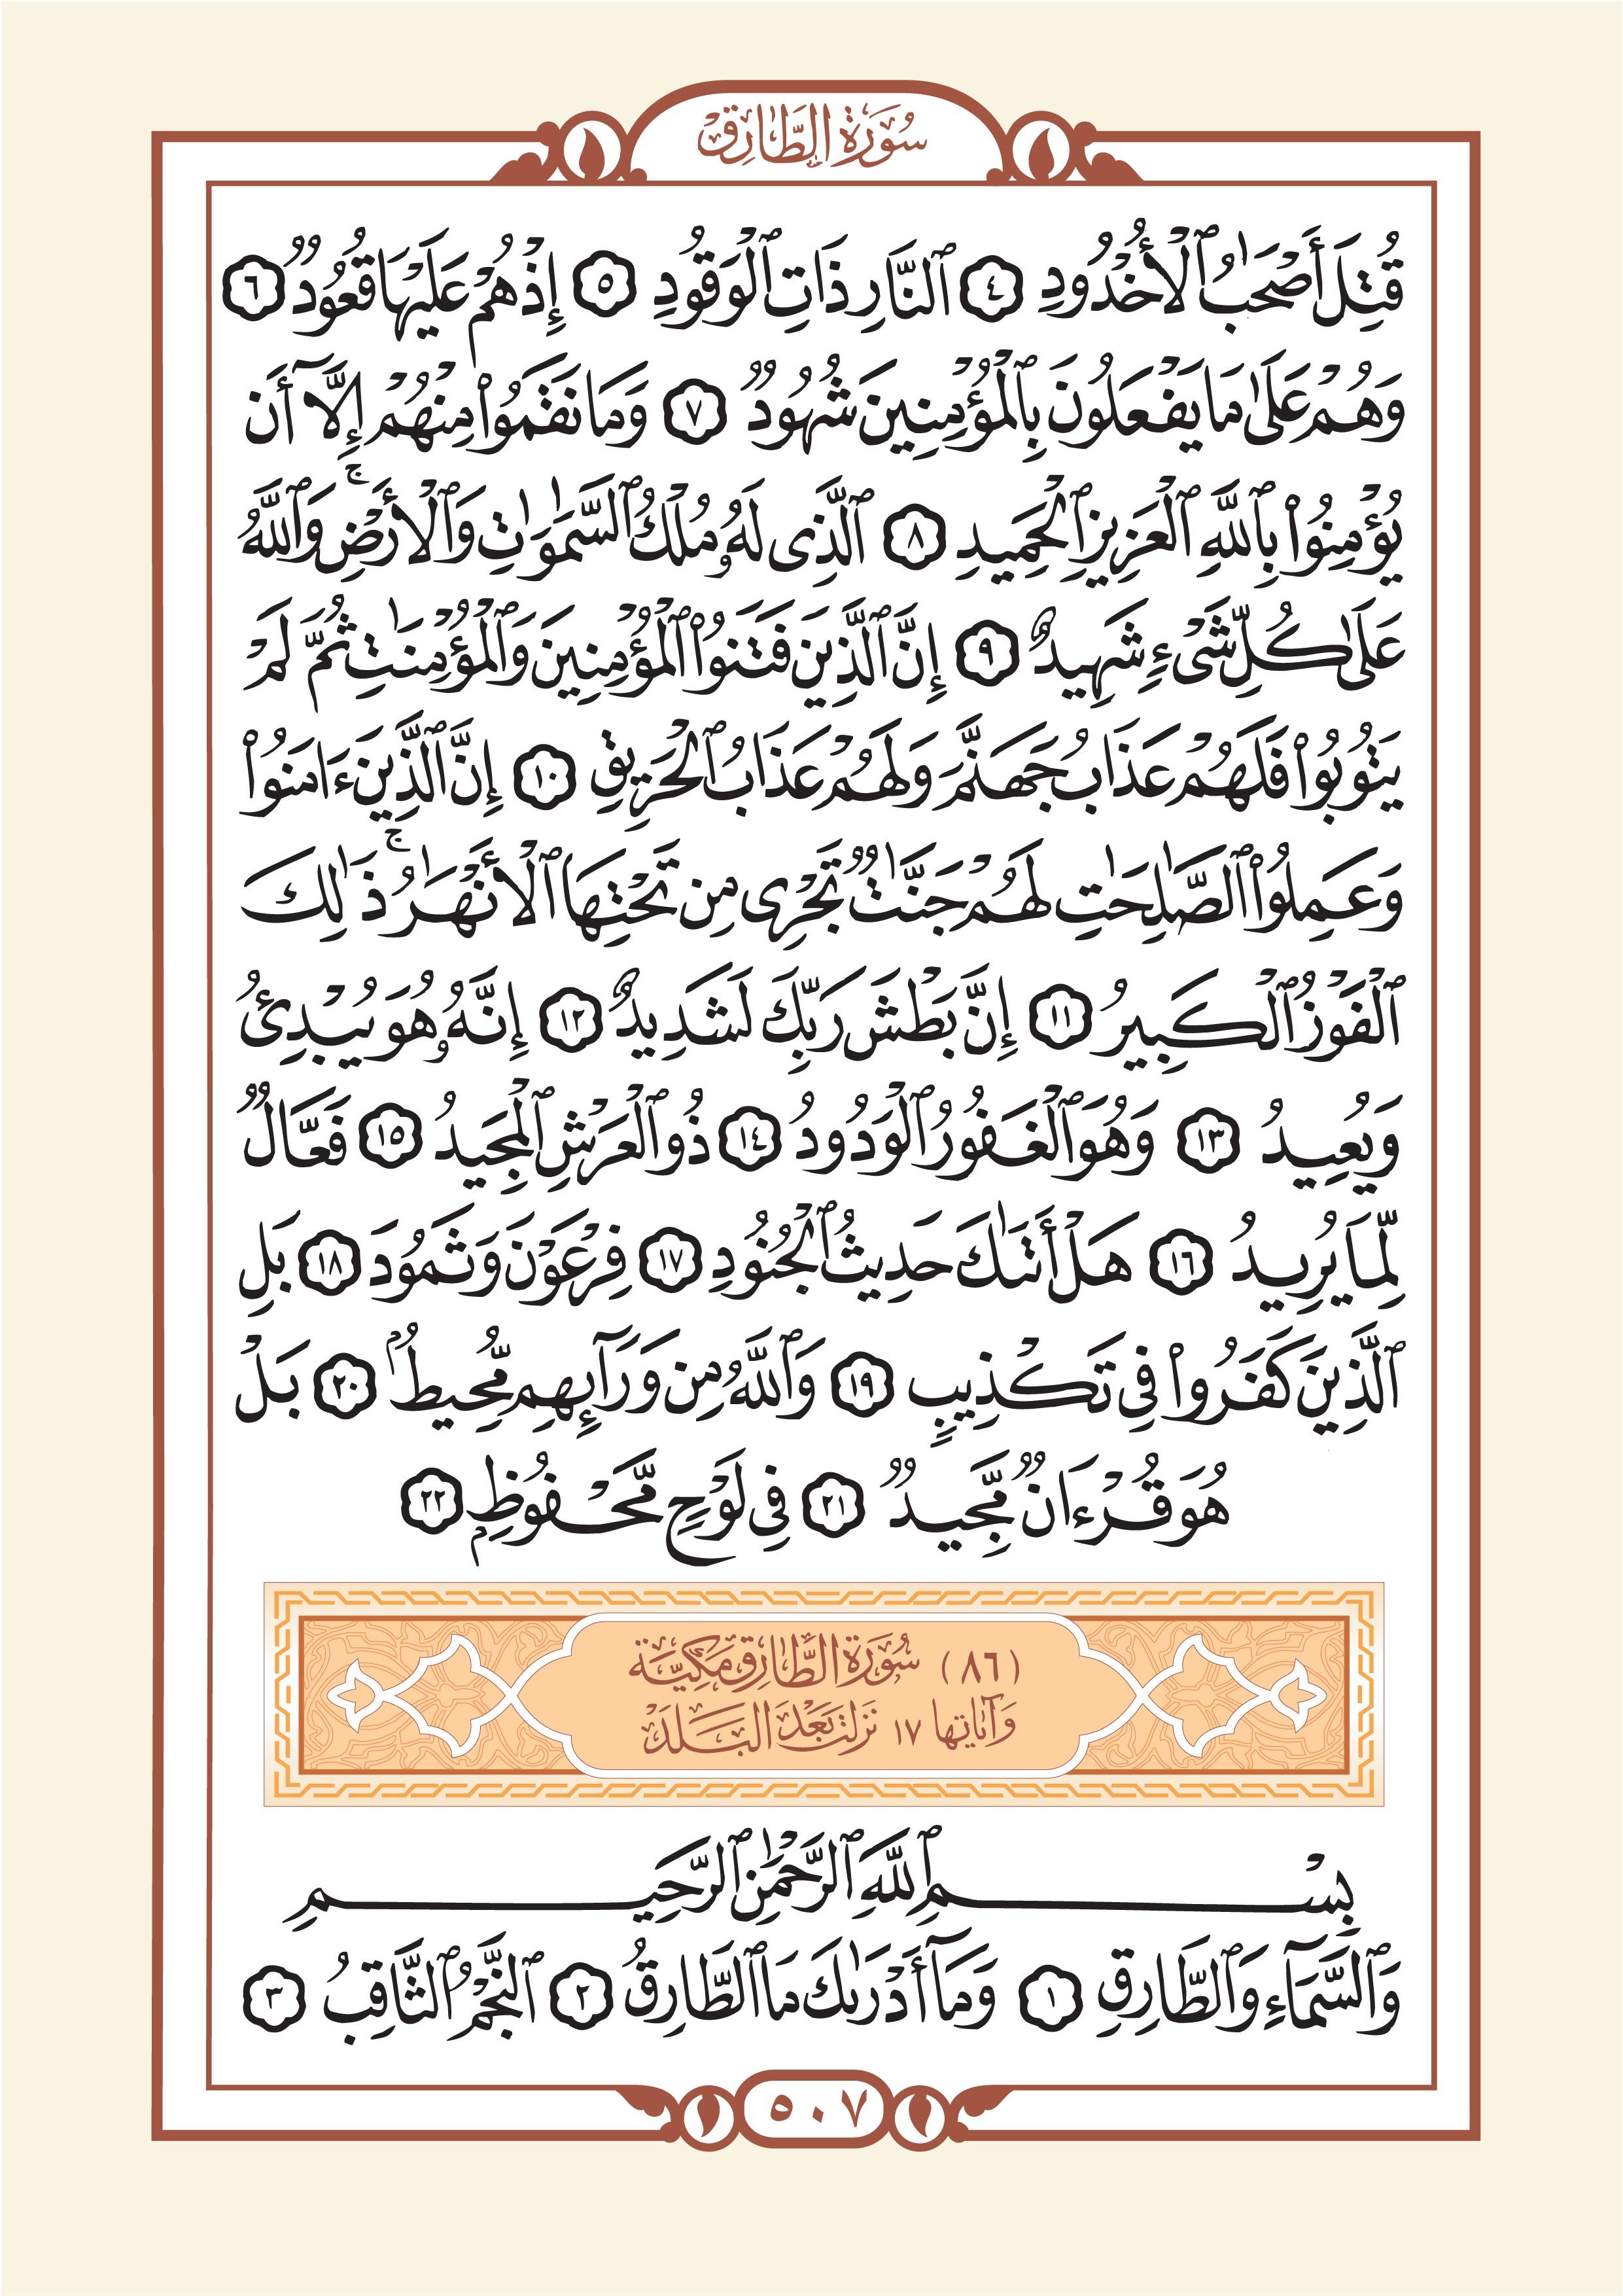 سُورَةُ الطَّارِقِ
قُتِلَ أَصْحَٰبُ ٱلْأُخْدُودِ ٤ ٱلنَّارِ ذَاتِ ٱلْوَقُودِ ٥ إِذْ هُمْ عَلَيْهَا قُعُودٌ ٦
وَهُمْ عَلَىٰ مَا يَفْعَلُونَ بِٱلْمُؤْمِنِينَ شُهُودٌ ٧ وَمَا نَقَمُوا۟ مِنْهُمْ إِلَّآ أَن
يُؤْمِنُوا۟ بِٱللَّهِ ٱلْعَزِيزِ ٱلْحَمِيدِ ٨ ٱلَّذِى لَهُۥ مُلْكُ ٱلسَّمَٰوَٰتِ وَٱلْأَرْضِ ۚ وَٱللَّهُ
عَلَىٰ كُلِّ شَىْءٍ شَهِيدٌ ٩ إِنَّ ٱلَّذِينَ فَتَنُوا۟ ٱلْمُؤْمِنِينَ وَٱلْمُؤْمِنَٰتِ ثُمَّ لَمْ
يَتُوبُوا۟ فَلَهُمْ عَذَابُ جَهَنَّمَ وَلَهُمْ عَذَابُ ٱلْحَرِيقِ ١٠ إِنَّ ٱلَّذِينَ ءَامَنُوا۟
وَعَمِلُوا۟ ٱلصَّٰلِحَٰتِ لَهُمْ جَنَّٰتٌ تَجْرِى مِن تَحْتِهَا ٱلْأَنْهَٰرُ ۚ ذَٰلِكَ
ٱلْفَوْزُ ٱلْكَبِيرُ ١١ إِنَّ بَطْشَ رَبِّكَ لَشَدِيدٌ ١٢ إِنَّهُۥ هُوَ يُبْدِئُ
وَيُعِيدُ ١٣ وَهُوَ ٱلْغَفُورُ ٱلْوَدُودُ ١٤ ذُو ٱلْعَرْشِ ٱلْمَجِيدُ ١٥ فَعَّالٌ
لِّمَا يُرِيدُ ١٦ هَلْ أَتَىٰكَ حَدِيثُ ٱلْجُنُودِ ١٧ فِرْعَوْنَ وَثَمُودَ ١٨ بَلِ
ٱلَّذِينَ كَفَرُوا۟ فِى تَكْذِيبٍ ١٩ وَٱللَّهُ مِن وَرَآئِهِم مُّحِيطٌۢ ٢٠ بَلْ
هُوَ قُرْءَانٌ مَّجِيدٌ ٢١ فِى لَوْحٍ مَّحْفُوظٍۭ ٢٢
(٨٦) سُورَةُ الطَّارِقِ مَكِّيَّة
وَآيَاتِها ١٧ نَزَلَتْ بَعْدَ الْبَلَدْ
بِسْمِ ٱللَّهِ ٱلرَّحْمَٰنِ ٱلرَّحِيمِ
وَٱلسَّمَآءِ وَٱلطَّارِقِ ١ وَمَآ أَدْرَىٰكَ مَا ٱلطَّارِقُ ٢ ٱلنَّجْمُ ٱلثَّاقِبُ ٣
٥٠٧